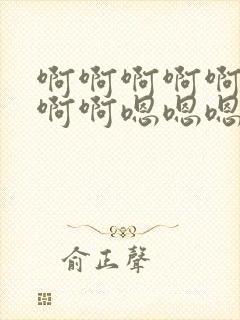 啊啊啊啊啊
啊啊嗯嗯嗯
俞正聲